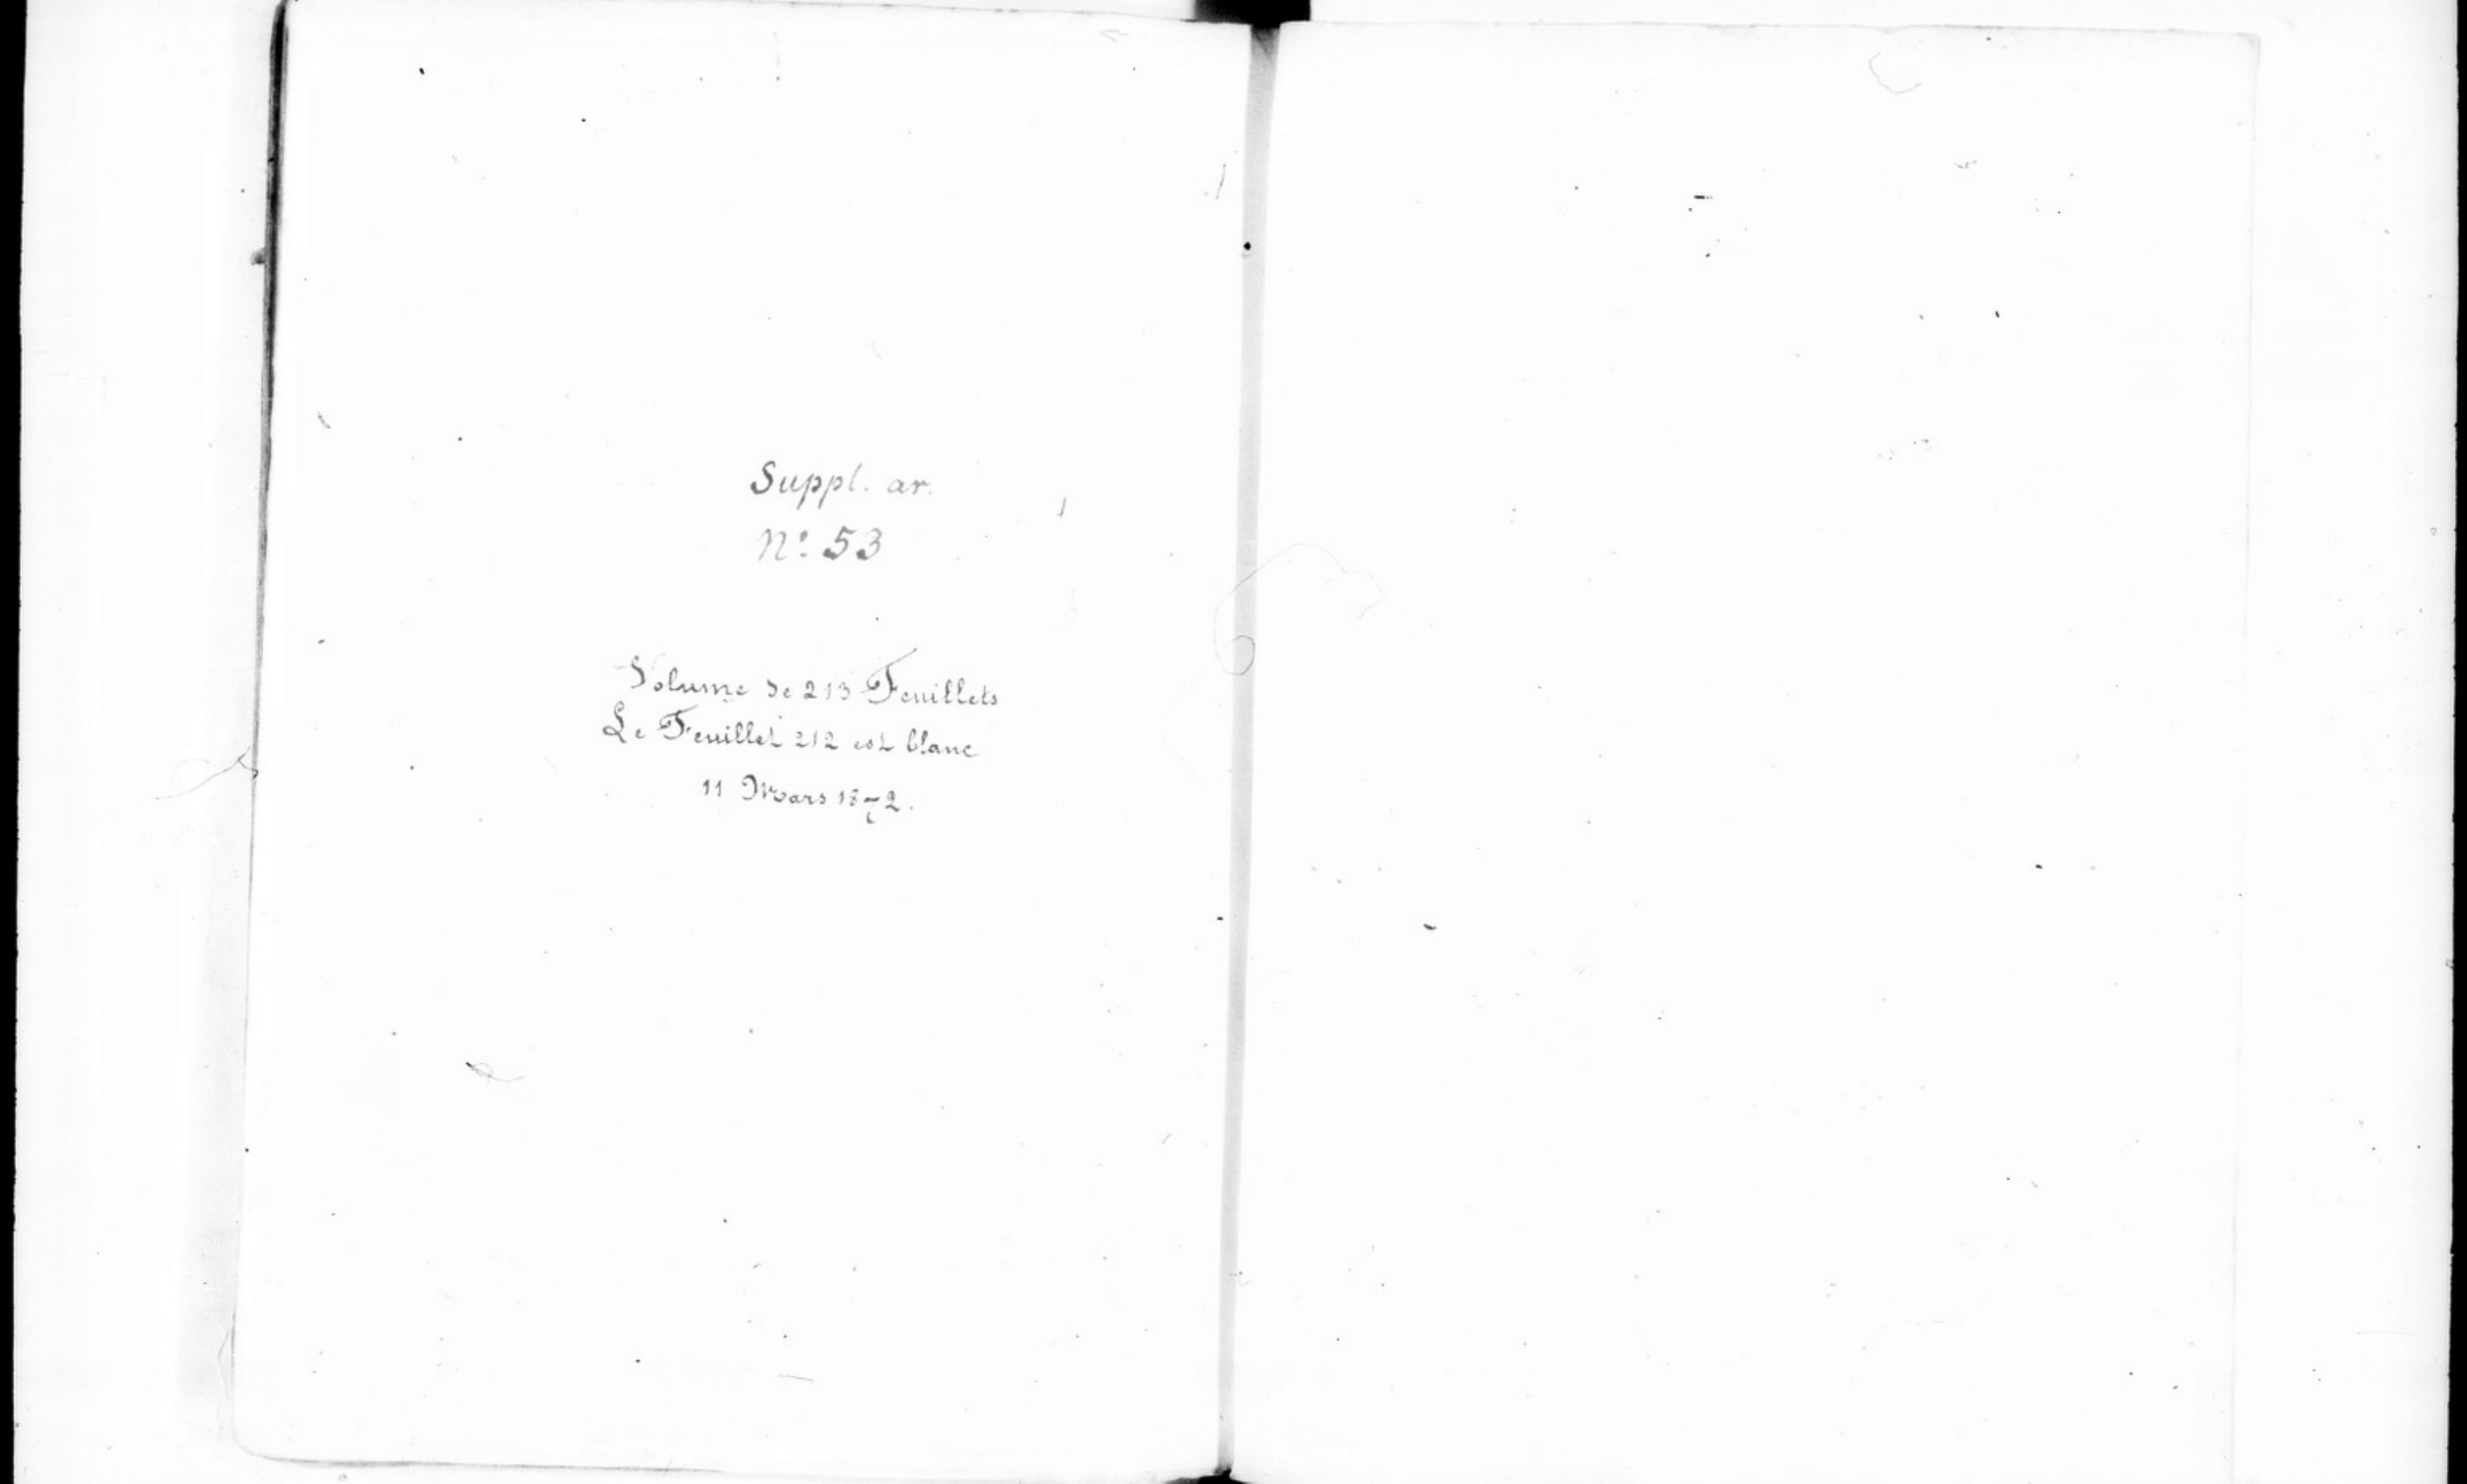 Suppl. ar.
No. 53
Volume de 213 Feuillets
Le Feuillet 212 est blanc
11 Mars 1872.